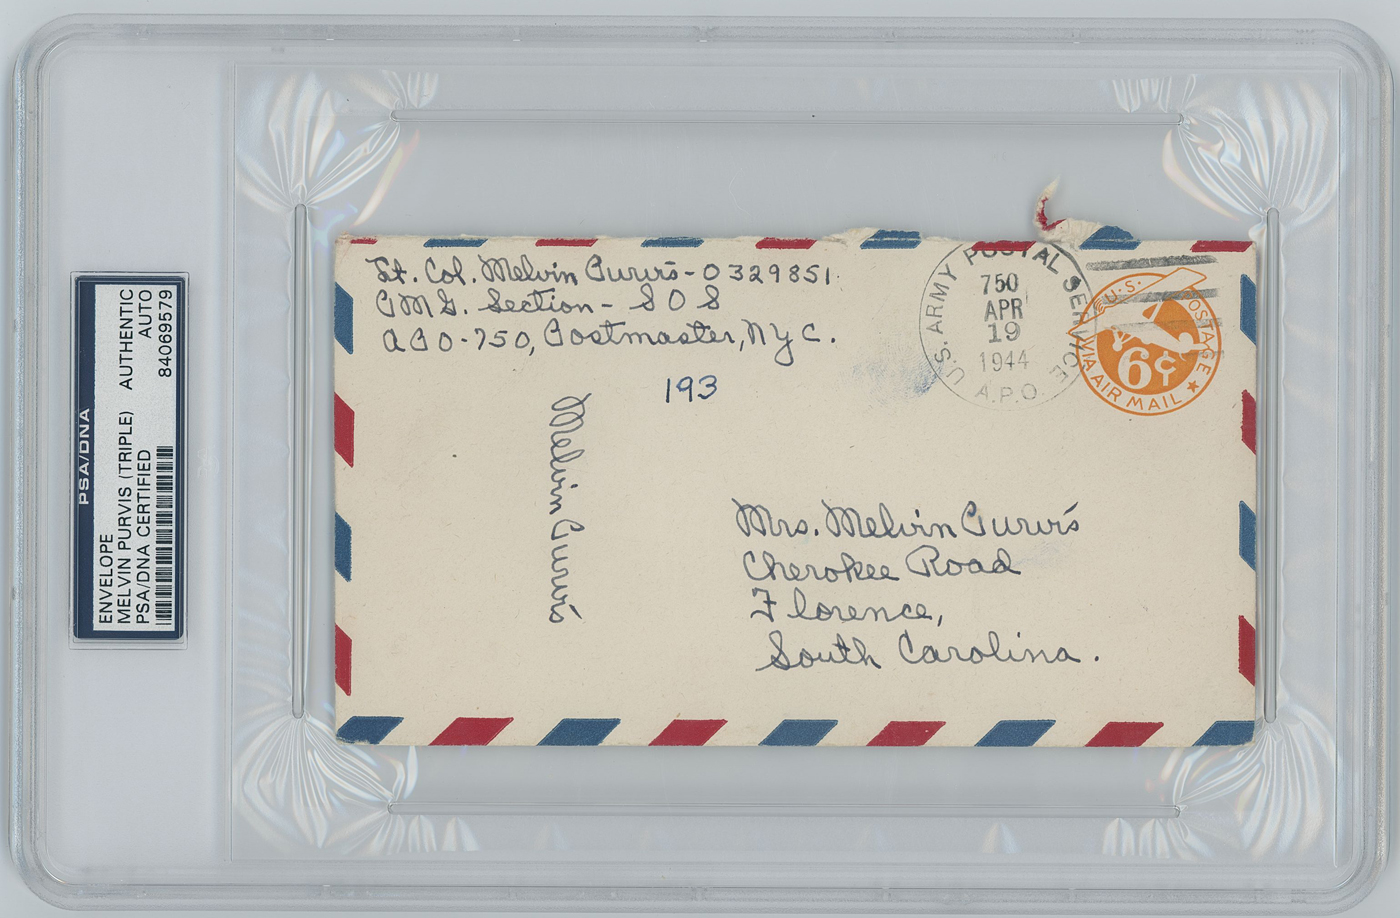 PSA/DNA
ENVELOPE
MELVIN PURVIS (TRIPLE) AUTHENTIC
PSA/DNA CERTIFIED AUTO
84069579
Lt. Col. Melvin Purvis - O 329851
PMG. Section - S O S
APO - 750, Postmaster, NYC.
193
Melvin Purvis
U.S. ARMY POSTAL SERVICE
750
APR
19
1944
A.P.O.
U.S. POSTAGE
6¢
VIA AIR MAIL
Mrs. Melvin Purvis
Cherokee Road
Florence,
South Carolina.